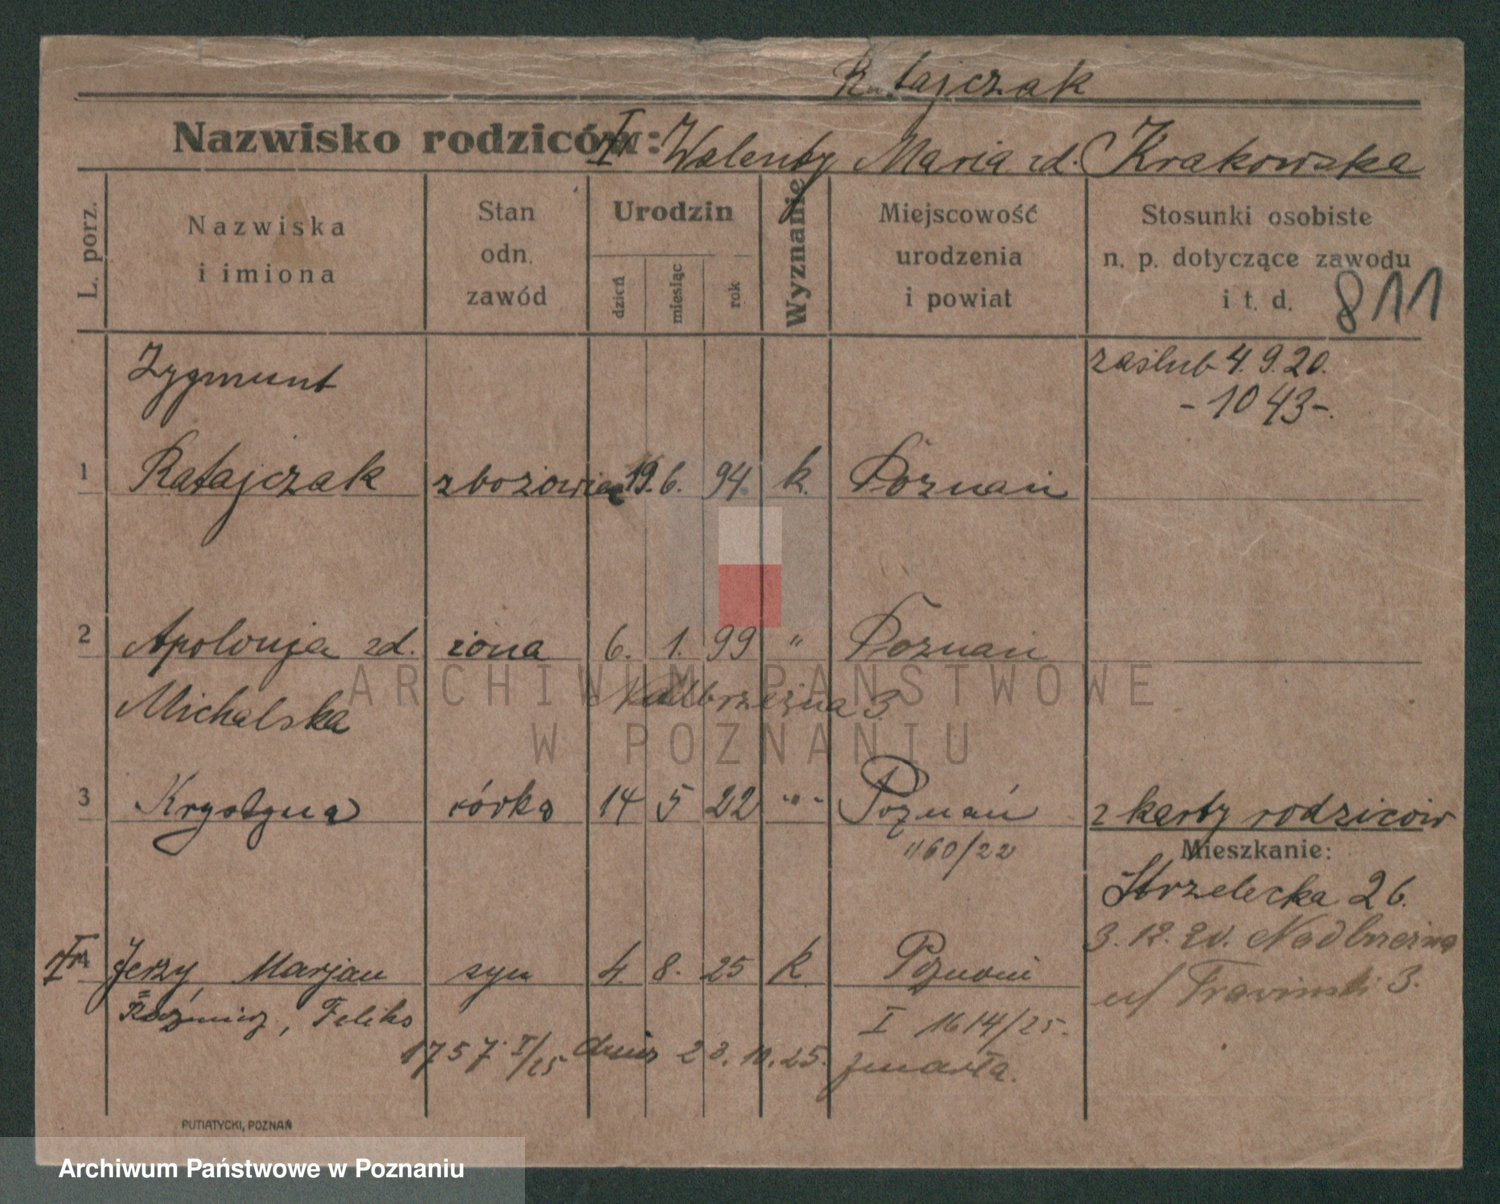 Ratajczak
Nazwisko rodziców: I Walenty Maria zd. Krakowska
L. porz.
Nazwiska
i imiona
Stan
odn.
zawód
Urodzin
dzień
miesiąc
rok
Wyznanie
Miejscowość
urodzenia
i powiat
Stosunki osobiste
n. p. dotyczące zawodu
i t. d.
811
Zygmunt
zaślub 4.9.20.
-1043-.
1 Ratajczak zbożowiec 19. 6. 94. k. Poznań
2 Apolonja zd. żona 6. 1. 99 " Poznań
Michalska Nadbrzeżna 3.
3 Krystyna córka 14 5 22 -"- Poznań z karty rodziców
1160/22
Mieszkanie:
Strzelecka 26.
3.12.20. Nadbrzeżna
4 Jerzy, Marjan syn 4. 8. 25 k. Poznań
3.
Feliks
I 1614/25.
1757 I/25 23.10.25. zmarła.
PUTIATYCKI, POZNAŃ
ARCHIWUM PAŃSTWOWE
W POZNANIU
Archiwum Państwowe w Poznaniu